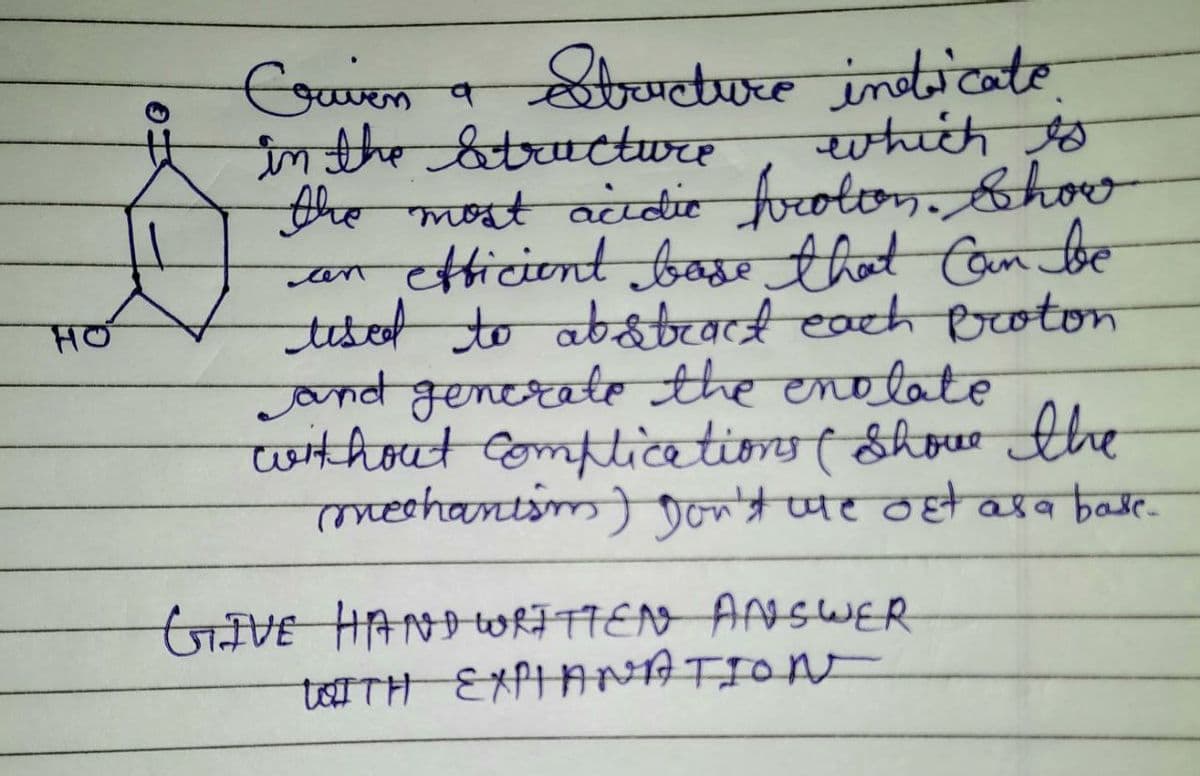 O
HO
Given a Structure indicate
in the Structure which is
the most acidic proton. Show
an efficient base that can be
used to abstract each proton
and generate the enolate
without Complications (Show the
mechanism) Don't use OEt as a base.
GIVE HANDWRITTEN ANSWER
WITH EXPLANATION